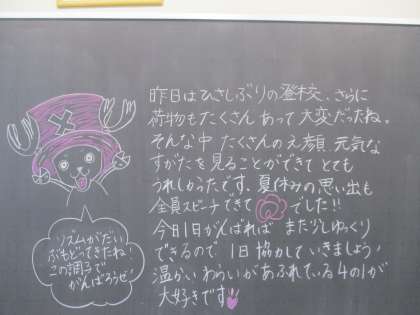 昨日はひさしぶりの登校、さらに
荷物もたくさんあって大変だったね。
そんな中たくさんのえ顔、元気な
すがたを見ることができてとても
うれしかったです。夏休みの思い出も
全員スピーチできて でした!!
今日1日がんばれば また少しゆっくり
できるので、1日協力していきましょう!
温かいわらいがあふれている4の1が
大好きです
リズムがだい
ぶもどってきたね!
この調子で
がんばろうぜ!